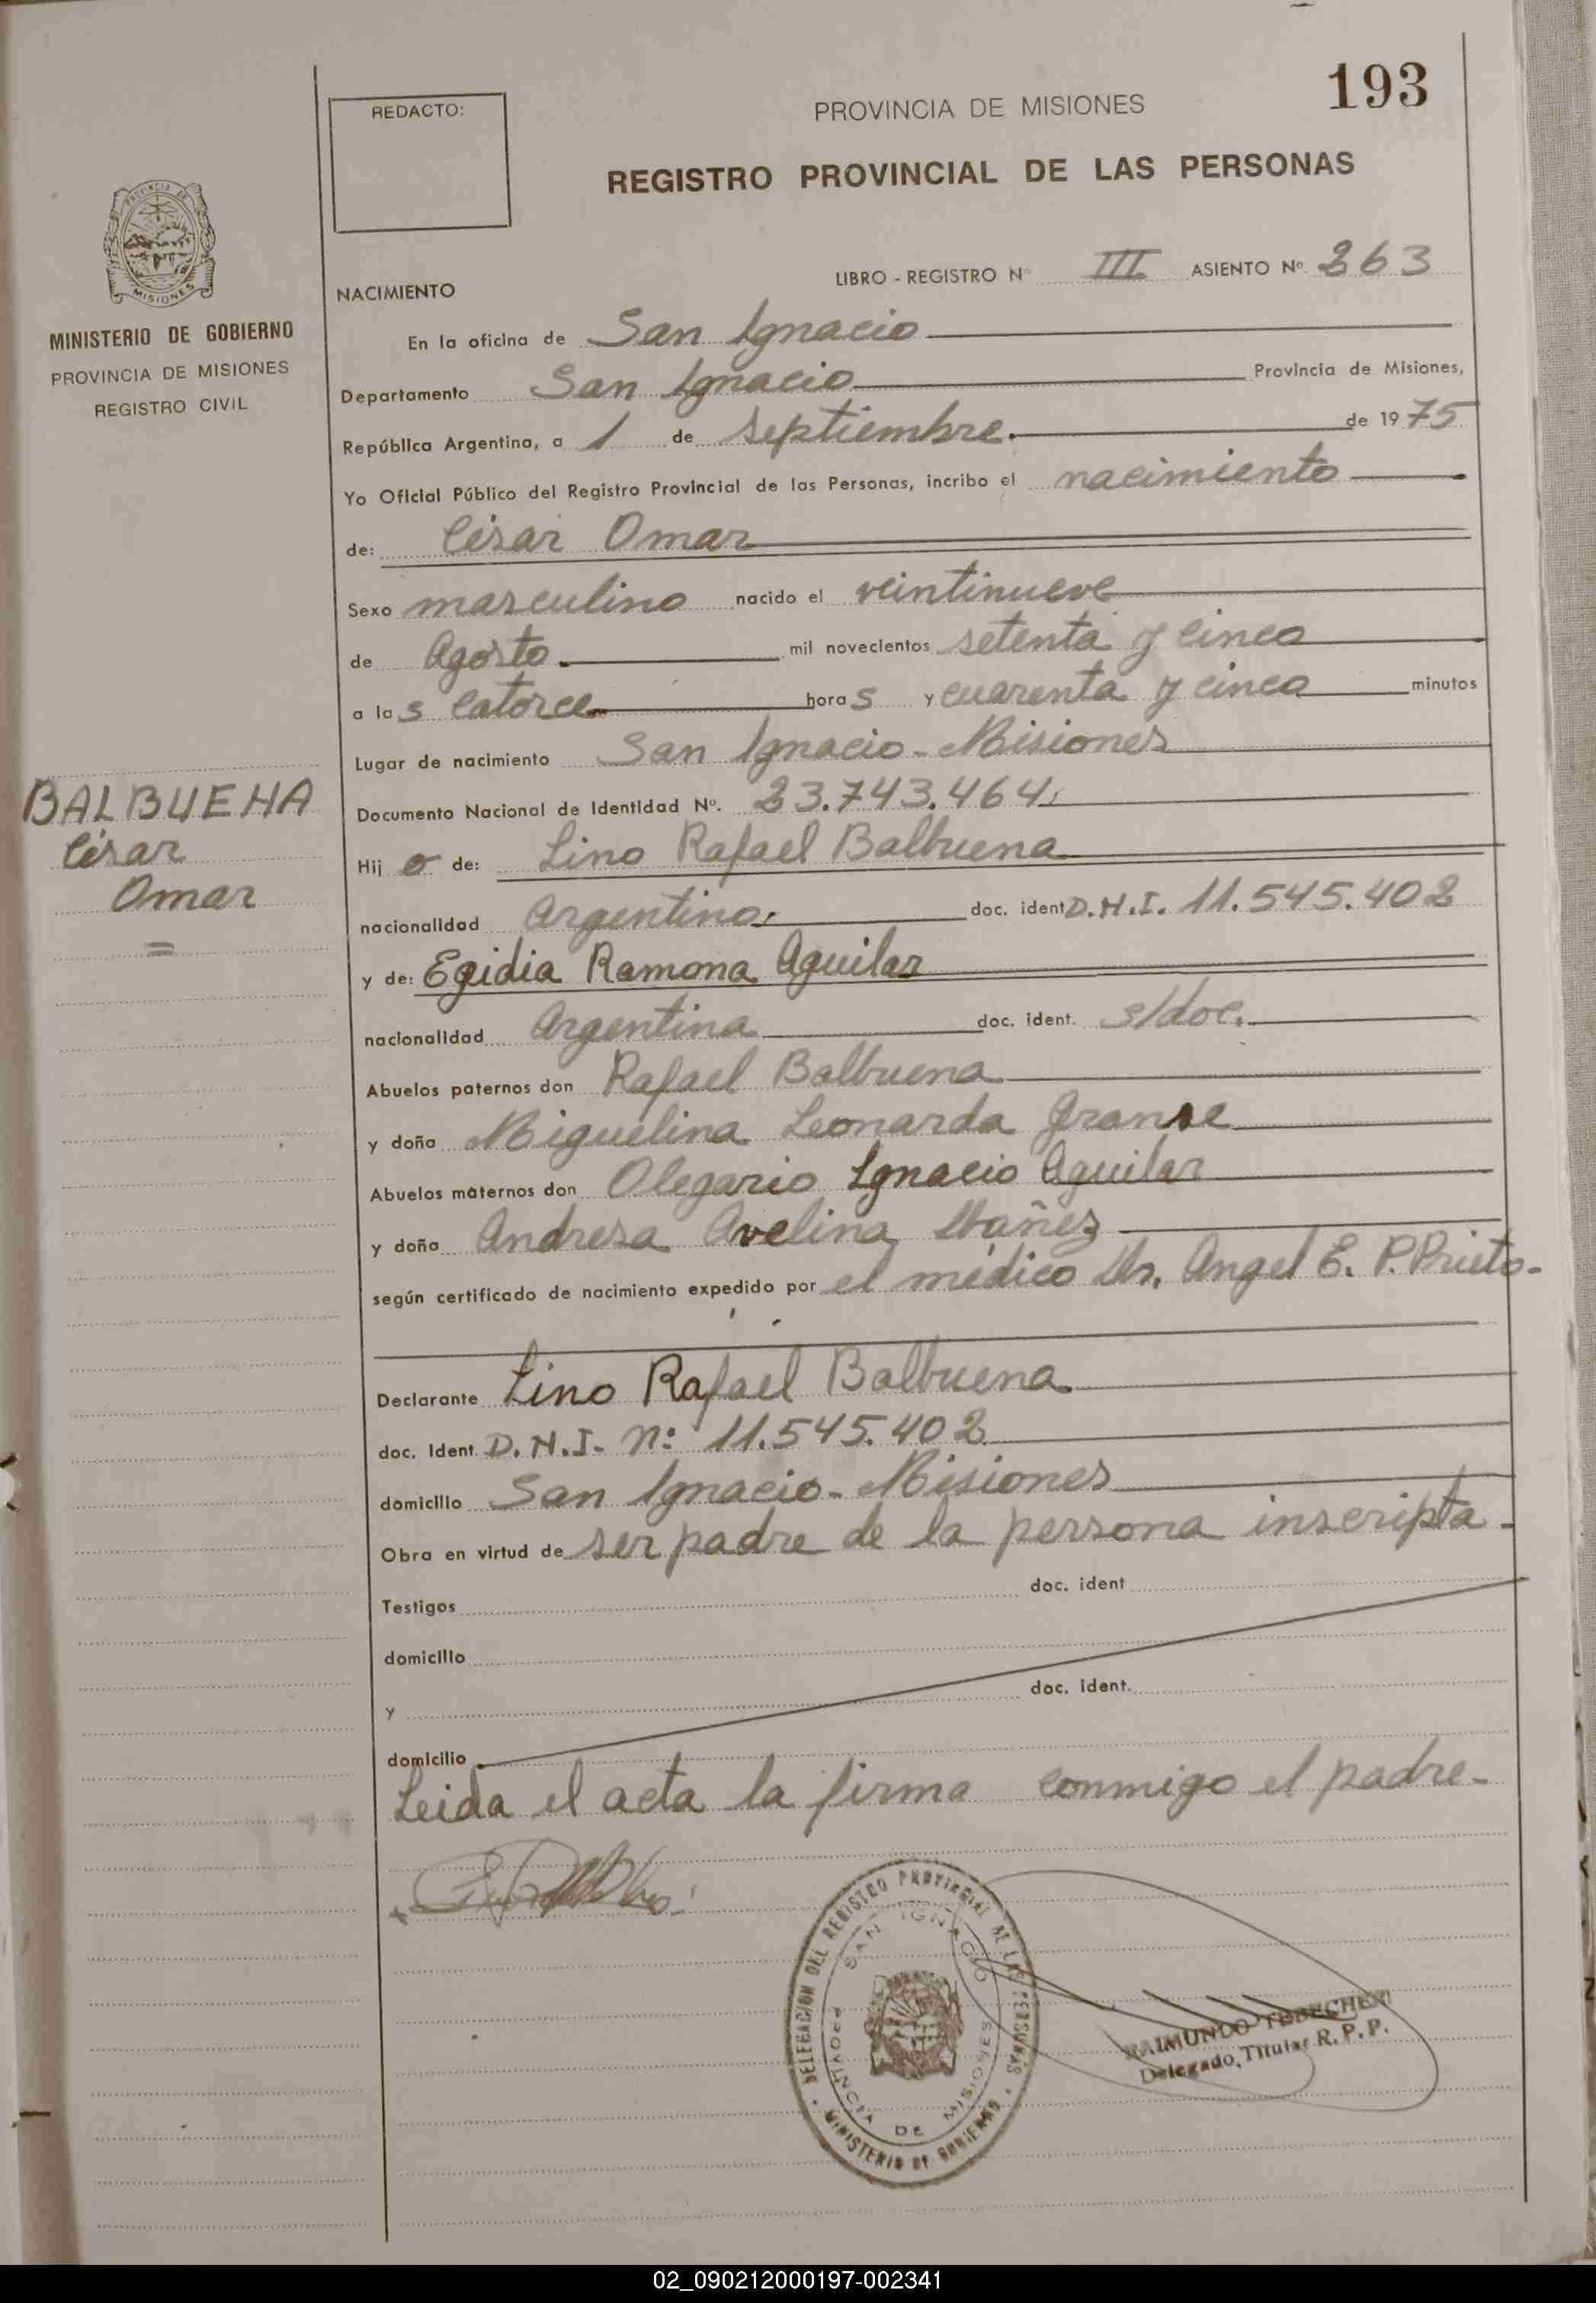 193
REDACTO:
PROVINCIA DE MISIONES
REGISTRO PROVINCIAL DE LAS PERSONAS
PROVINCIA DE
MISIONES
MINISTERIO DE GOBIERNO
PROVINCIA DE MISIONES
REGISTRO CIVIL
LIBRO - REGISTRO Nº III ASIENTO Nº 263
NACIMIENTO
En la oficina de San Ignacio
Departamento San Ignacio Provincia de Misiones,
República Argentina, a 1 de Septiembre. de 1975
Yo Oficial Público del Registro Provincial de las Personas, incribo el nacimiento
de: César Omar
Sexo masculino nacido el veintinueve
de Agosto. mil novecientos setenta y cinco
a las catorce horas y cuarenta y cinco minutos
Lugar de nacimiento San Ignacio - Misiones
Documento Nacional de Identidad Nº. 23.743.464.
BALBUENA
César
Omar
=
Hij o de: Lino Rafael Balbuena
nacionalidad Argentino. doc. ident D.N.I. 11.545.402
y de: Egidia Ramona Aguilar
nacionalidad Argentina doc. ident. s/doc.
Abuelos paternos don Rafael Balbuena
y doña Miguelina Leonarda
Abuelos maternos don Olegario Ignacio Aguilar
y doña Andresa Avelina Ibañez
según certificado de nacimiento expedido por el médico Dr. Angel E. P. Prieto-
Declarante Lino Rafael Balbuena
doc. Ident D.N.I. nº 11.545.402
domicilio San Ignacio - Misiones
Obra en virtud de ser padre de la persona inscripta.
Testigos doc. ident
domicilio
y doc. ident.
domicilio
Leida el acta la firma conmigo el padre-
DELEGACION DEL REGISTRO PROVINCIAL DE LAS PERSONAS
SAN IGNACIO
PROVINCIA DE MISIONES
MINISTERIO DE GOBIERNO
RAIMUNDO
Delegado Titular R. P. P.
02_090212000197-002341